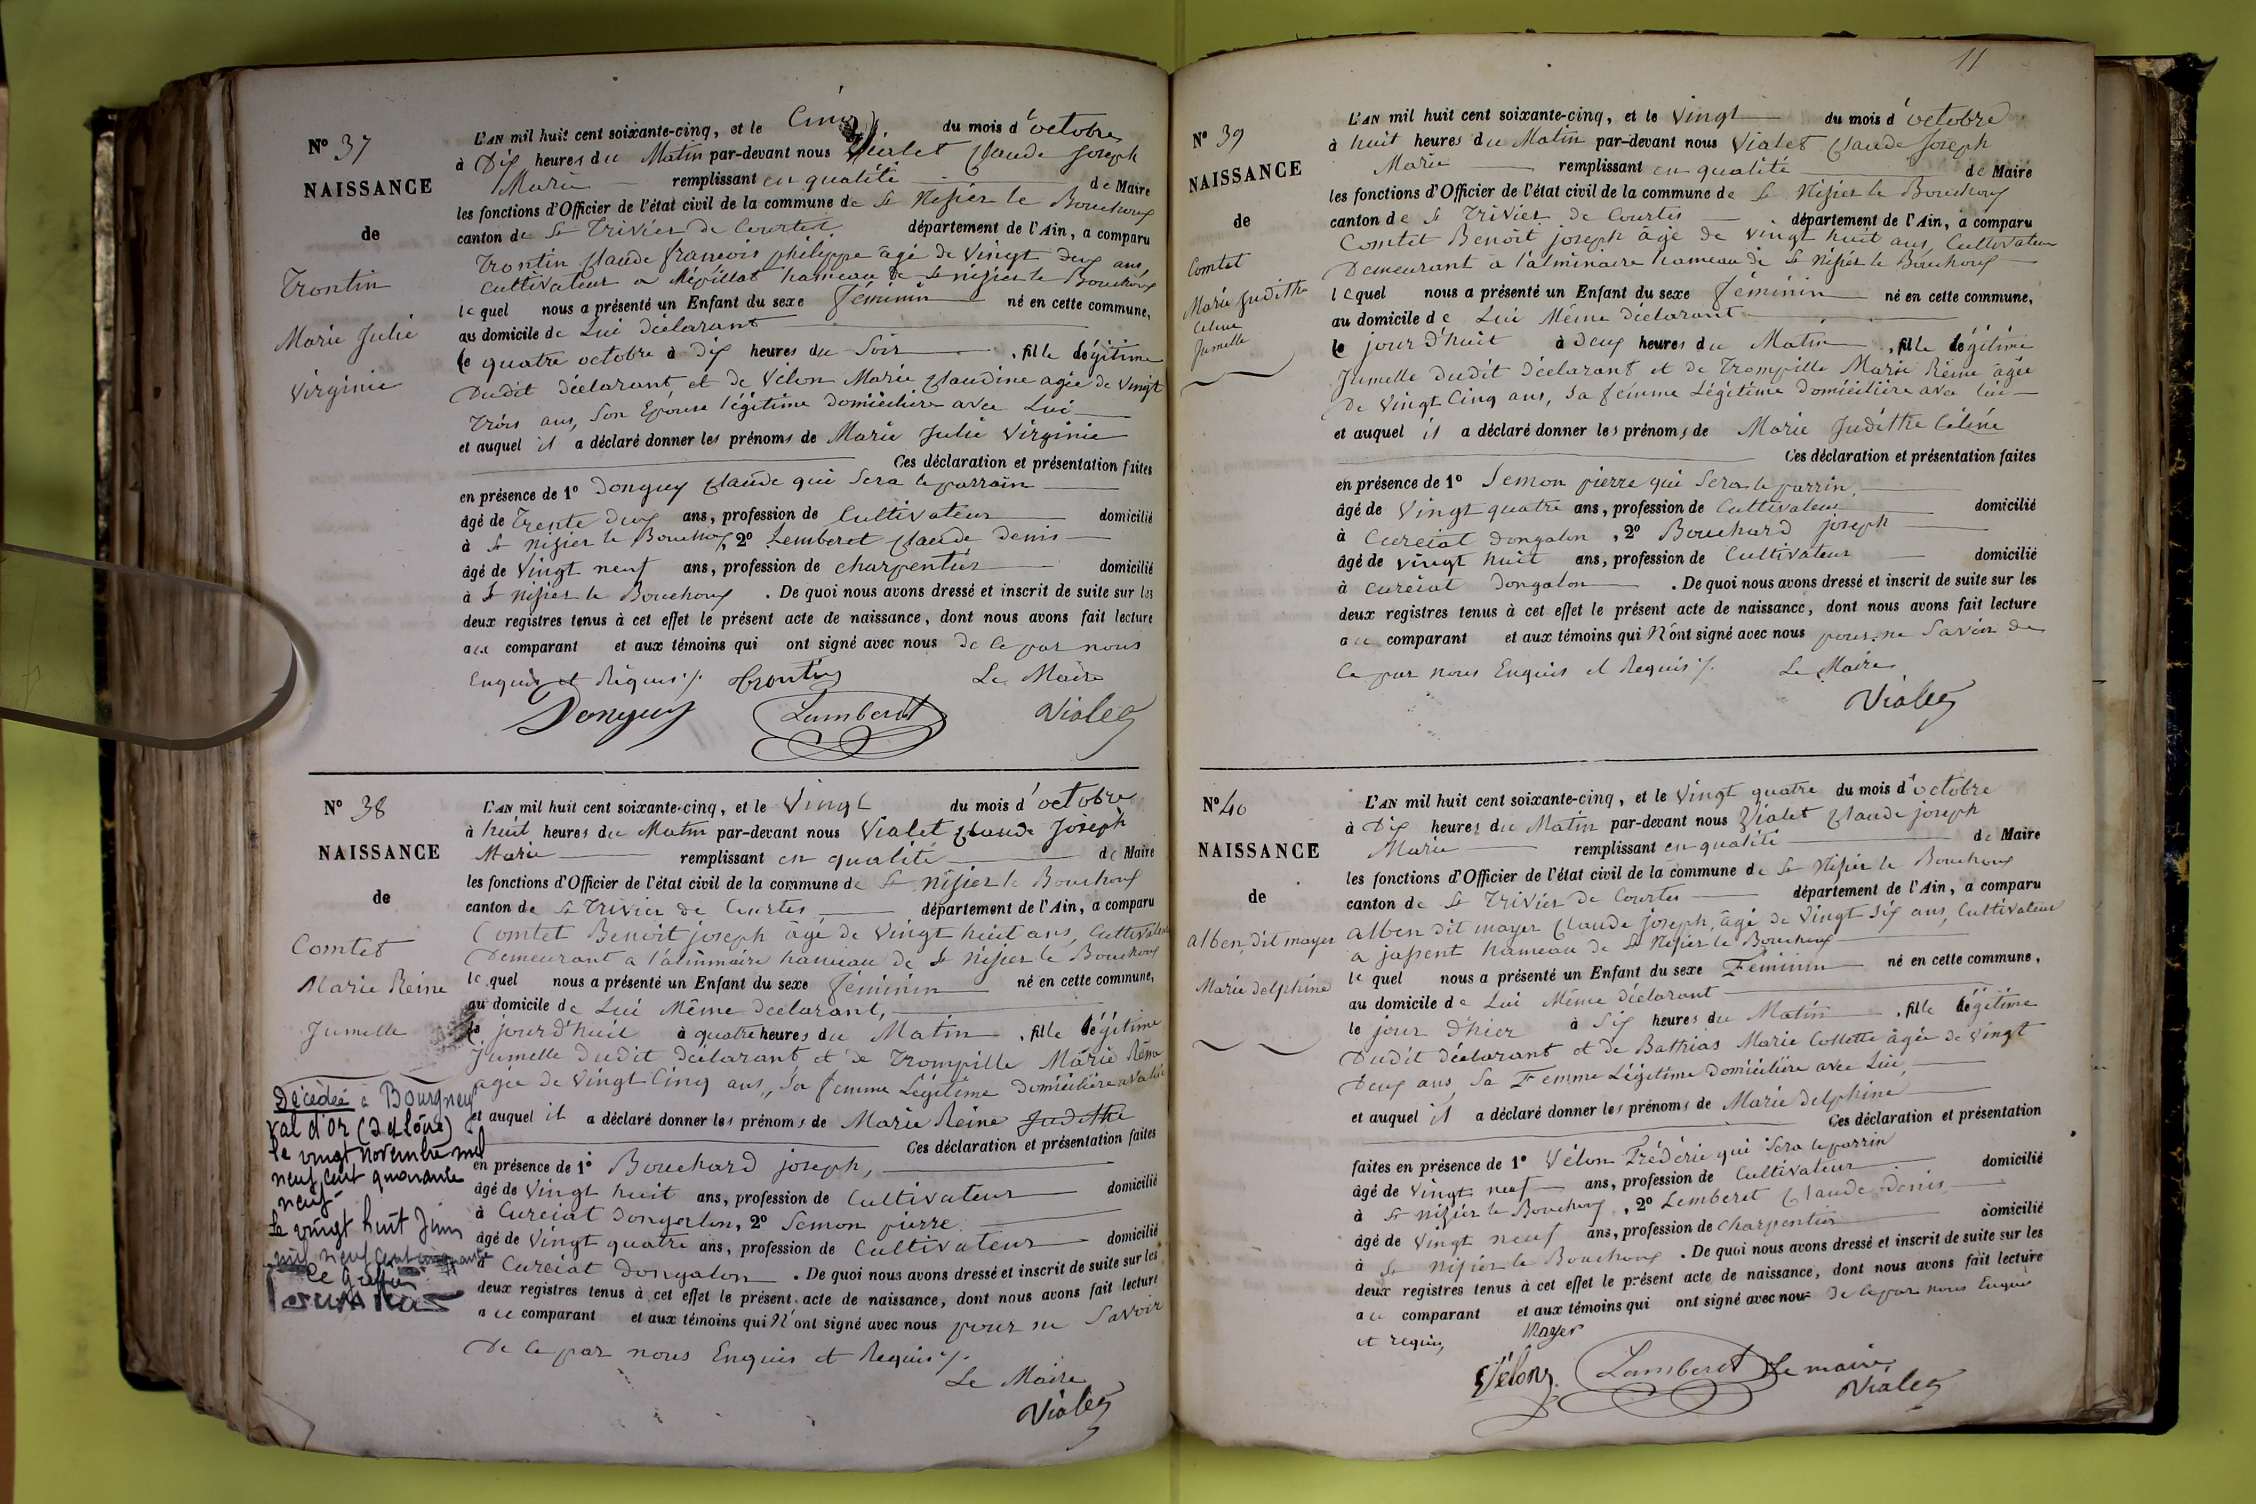 N° 37
NAISSANCE
de
Trontin
Marie Julie
Virginie
L'AN mil huit cent soixante-cinq, et le Cinq du mois d'octobre
à Dix heures du Matin par-devant nous Vialet Claude Joseph
Marie remplissant en qualité de Maire
les fonctions d'Officier de l'état civil de la commune de St Nizier le Bouchoux
canton de St Trivier de Courtes département de l'Ain, a comparu
Trontin Claude françois philippe âgé de Vingt deux ans,
Cultivateur a Mépillat hameau de St nizier le Bouchoux
lequel nous a présenté un Enfant du sexe féminin né en cette commune,
au domicile de Lui déclarant
le quatre octobre à Dix heures du Soir , fille légitime
Dudit déclarant et de Vélon Marie Claudine agée de Vingt
Trois ans, Son Epouse légitime domiciliére avec Lui
et auquel il a déclaré donner les prénoms de Marie Julie Virginie
Ces déclaration et présentation faites
en présence de 1° Donguy Claude qui Sera le parrain
âgé de Trente deux ans, profession de Cultivateur domicilié
à St nizier le Bouchoux, 2° Lemberet Claude Denis
âgé de Vingt neuf ans, profession de charpentier domicilié
à St Nizier le Bouchoux . De quoi nous avons dressé et inscrit de suite sur les
deux registres tenus à cet effet le présent acte de naissance, dont nous avons fait lecture
au comparant et aux témoins qui ont signé avec nous de ce par nous
Enquis et Réquis ./. Trontin Le Maire
Donguy Lamberet Vialet
N° 38
NAISSANCE
de
Comtet
Marie Reine
Jumelle
Décédée à Bourgneuf
Val d'Or (S et Loire)
le vingt novembre mil
neuf cent quarante
neuf
Le vingt huit Juin
mil neuf cent cinquante
Le Greffier
L'AN mil huit cent soixante-cinq, et le Vingt du mois d'octobre
à huit heures du Matin par-devant nous Vialet Claude Joseph
Marie remplissant en qualité de Maire
les fonctions d'Officier de l'état civil de la commune de St Nizier le Bouchoux
canton de St Trivier de Courtes département de l'Ain, a comparu
Comtet Benoit joseph âgé de Vingt huit ans, Cultivateur
Demeurant a l'alminaire hameau de St Nizier le Bouchoux
lequel nous a présenté un Enfant du sexe féminin né en cette commune,
au domicile de Lui Même déclarant,
le jour d'huit à quatre heures du Matin , fille légitime
Jumelle Dudit déclarant et de Trompille Marie Réine
agée de Vingt Cinq ans, Sa femme Légitime domiciliére avec lui
et auquel il a déclaré donner les prénoms de Marie Reine Judithe
Ces déclaration et présentation faites
en présence de 1° Bouchard joseph,
âgé de Vingt huit ans, profession de Cultivateur domicilié
à Curciat Dongalon, 2° Semon pierre
âgé de Vingt quatre ans, profession de Cultivateur domicilié
à Curciat Dongalon . De quoi nous avons dressé et inscrit de suite sur les
deux registres tenus à cet effet le présent acte de naissance, dont nous avons fait lecture
au comparant et aux témoins qui N'ont signé avec nous pour ne Savoir
De ce par nous Enquis et Requis ./.
Le Maire
Vialet
11
N° 39
NAISSANCE
de
Comtet
Marie Judithe
Céline
Jumelle
L'AN mil huit cent soixante-cinq, et le Vingt du mois d'octobre
à huit heures du Matin par-devant nous Vialet Claude Joseph
Marie remplissant en qualité de Maire
les fonctions d'Officier de l'état civil de la commune de St Nizier le Bouchoux
canton de St Trivier de Courtes département de l'Ain, a comparu
Comtet Benoît joseph âgé de vingt huit ans, Cultivateur
Demeurant a l'alminaire hameau de St Nizier le Bouchoux
lequel nous a présenté un Enfant du sexe féminin né en cette commune,
au domicile de Lui Même déclarant
le jour d'huit à Deux heures du Matin , fille légitime
Jumelle Dudit déclarant et de Trompille Marie Reine âgée
De Vingt Cinq ans, Sa femme Légitime domiciliére avec lui
et auquel il a déclaré donner les prénoms de Marie Judithe Céline
Ces déclaration et présentation faites
en présence de 1° Semon pierre qui Sera le parrin,
âgé de Vingt quatre ans, profession de Cultivateur domicilié
à Curciat Dongalon , 2° Bouchard joseph
âgé de vingt huit ans, profession de Cultivateur domicilié
à curciat Dongalon . De quoi nous avons dressé et inscrit de suite sur les
deux registres tenus à cet effet le présent acte de naissance, dont nous avons fait lecture
au comparant et aux témoins qui N'ont signé avec nous pour ne Savoir de
Ce par nous Enquis et Requis ./. Le Maire
Vialet
N° 40
NAISSANCE
de
alben dit mayer
Marie delphine
L'AN mil huit cent soixante-cinq, et le Vingt quatre du mois d'octobre
à Dix heures du Matin par-devant nous Vialet Claude joseph
Marie remplissant en qualité de Maire
les fonctions d'Officier de l'état civil de la commune de St Nizier le Bouchoux
canton de St Trivier de Courtes département de l'Ain, a comparu
alben dit mayer Claude joseph, âgé de Vingt Six ans, Cultivateur
a jassent hameau de St Nizier le Bouchoux
lequel nous a présenté un Enfant du sexe Féminin né en cette commune,
au domicile de Lui Même déclarant
le jour D'hier à Six heures du Matin , fille légitime
Dudit déclarant et de Bathias Marie Collette âgée de Vingt
Deux ans, Sa Femme Légitime domiciliére avec Lui,
et auquel il a déclaré donner les prénoms de Marie delphine
Ces déclaration et présentation
faites en présence de 1° Vélon Frédéric qui Sera le parrin
âgé de vingt neuf ans, profession de Cultivateur domicilié
à St nizier le Bouchoux, 2° Lemberet Claude Denis
âgé de Vingt neuf ans, profession de Charpentier domicilié
à St Nizier le Bouchoux . De quoi nous avons dressé et inscrit de suite sur les
deux registres tenus à cet effet le présent acte de naissance, dont nous avons fait lecture
au comparant et aux témoins qui ont signé avec nous de ce par nous Enquis
et requis, Mayer
Vélon Lamberet Le maire
Vialet